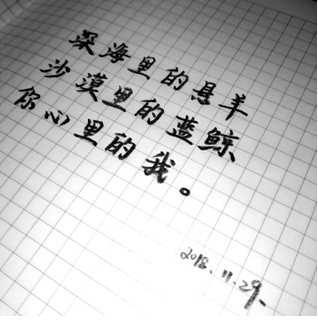 深海里的悬羊
沙漠里的蓝鲸
你心里的我。
2018.11.29.